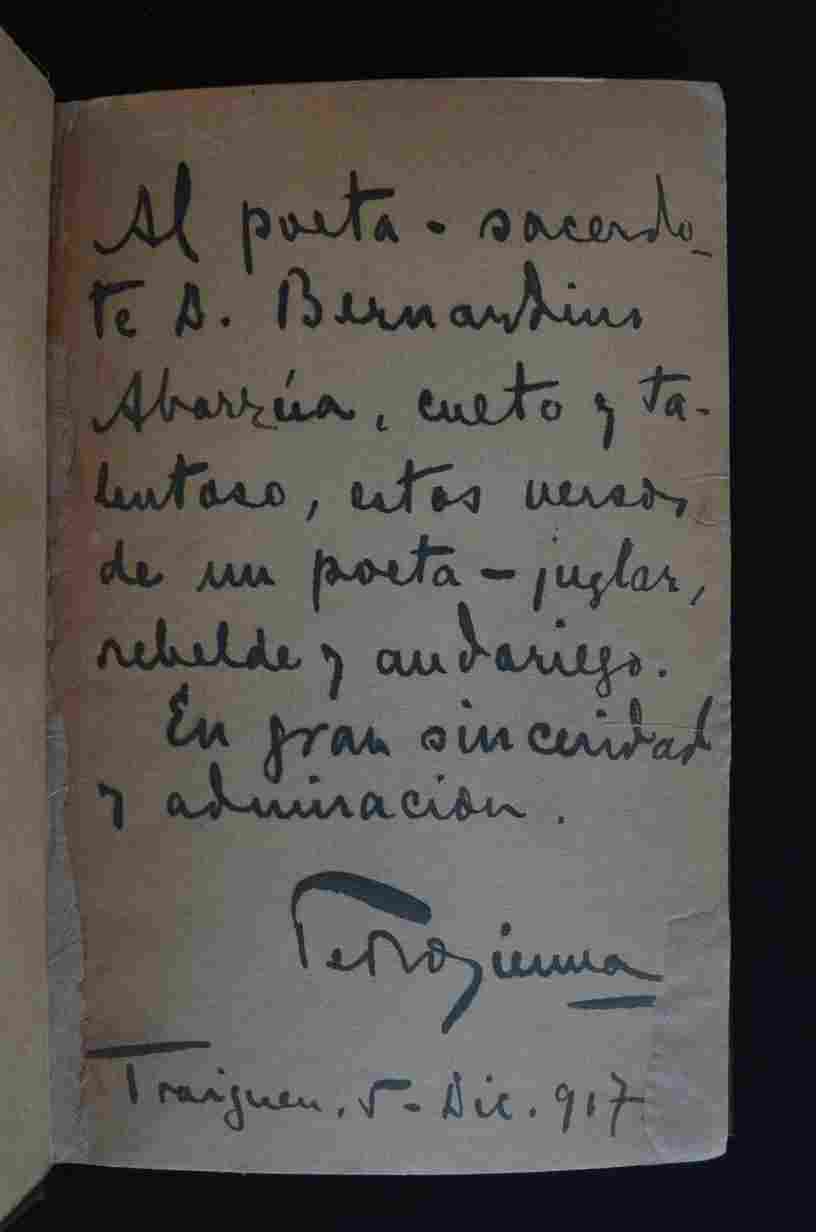 Al poeta - sacerdo_
te D. Bernardino
Abarzúa, culto y ta-
lentoso, estos versos
de un poeta - juglar,
rebelde y andariego.
En gran sinceridad
y admiración.
Pedro Sienna
Traiguen. 5 - Dic. 917